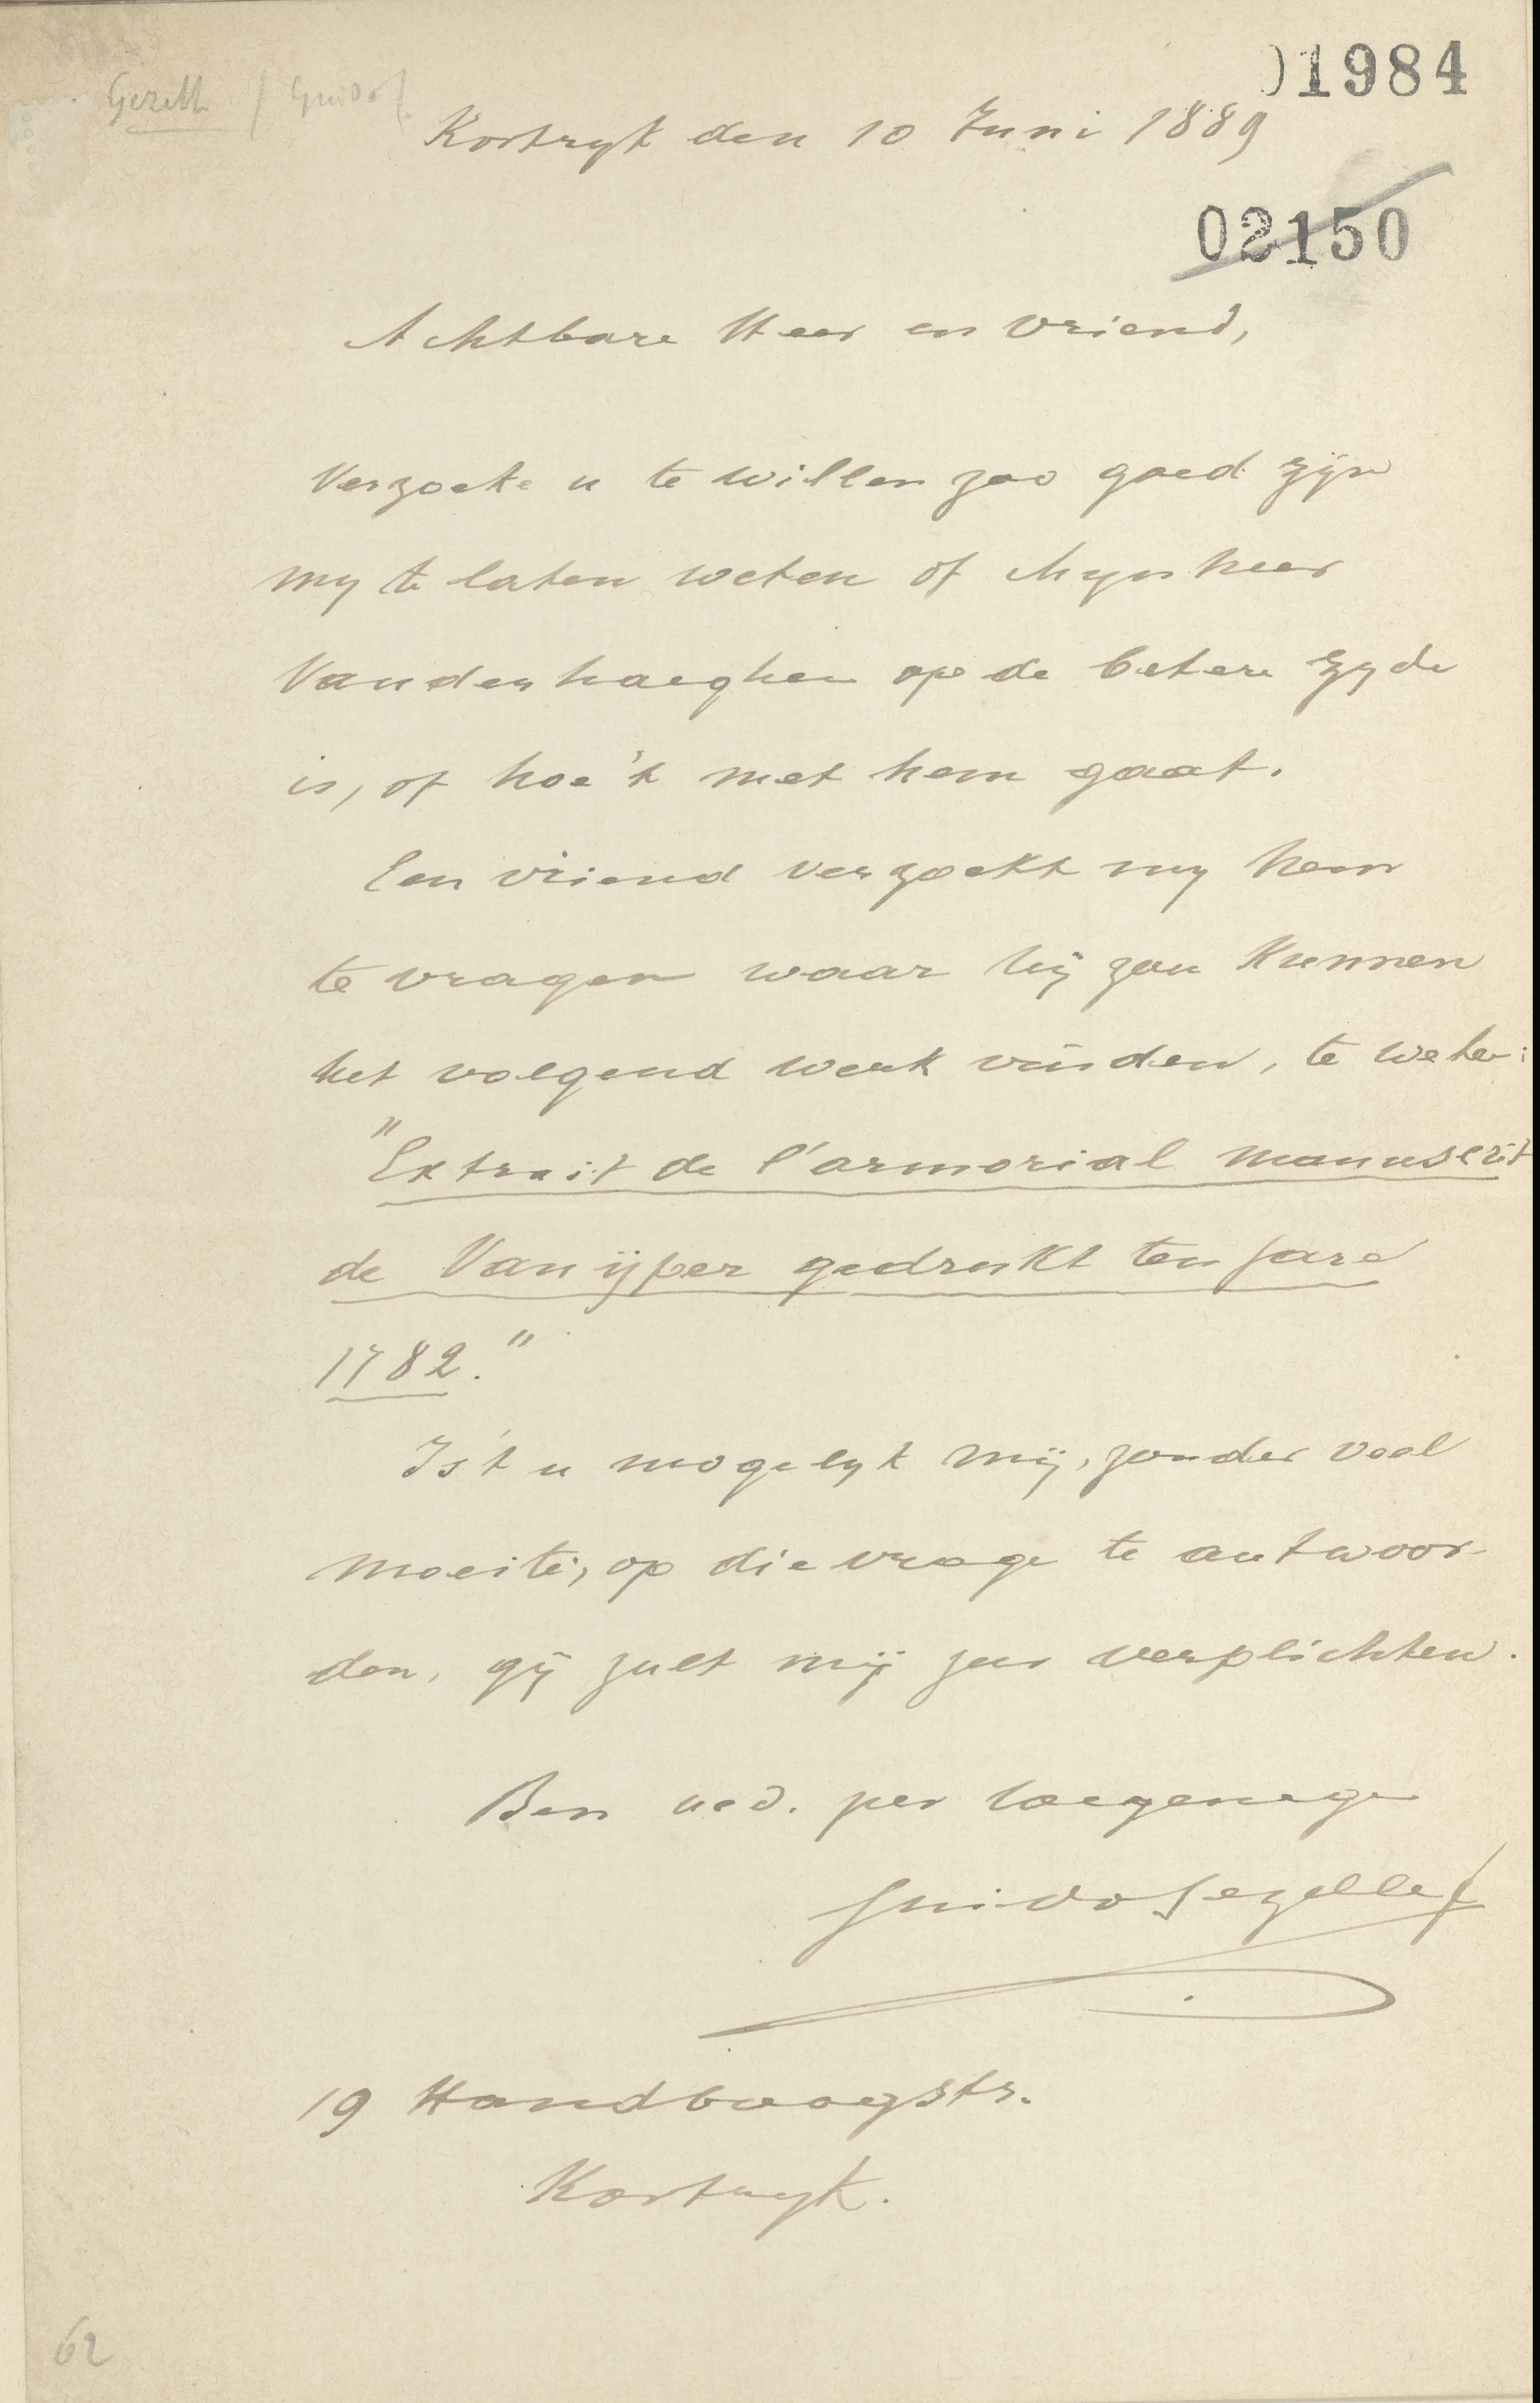 01984
Gezelle / Guido /
Kortryk den 10 Juni 1889
02150
Achtbare Heer en vriend,
Verzoeke u te willen zoo goed zijn
my te laten weten of Mynheer
Vanderhaeghen op de betere zyde
is, of hoe 't met hem gaat.
Een vriend verzoekt my hem
te vragen waar hij zou kunnen
het volgend werk vinden, te weten:
"Extrait de l'armorial manuscrit
de Van ijper gedrukt ten jare
1782."
Is 't u mogelyk mij, zonder veel
moeite, op die vrage te antwoor-
den, gij zult mij zeer verplichten.
Ben ued. zeer toegenege
Guido Gezelle
19 Handboogstr.
Kortryk.
62